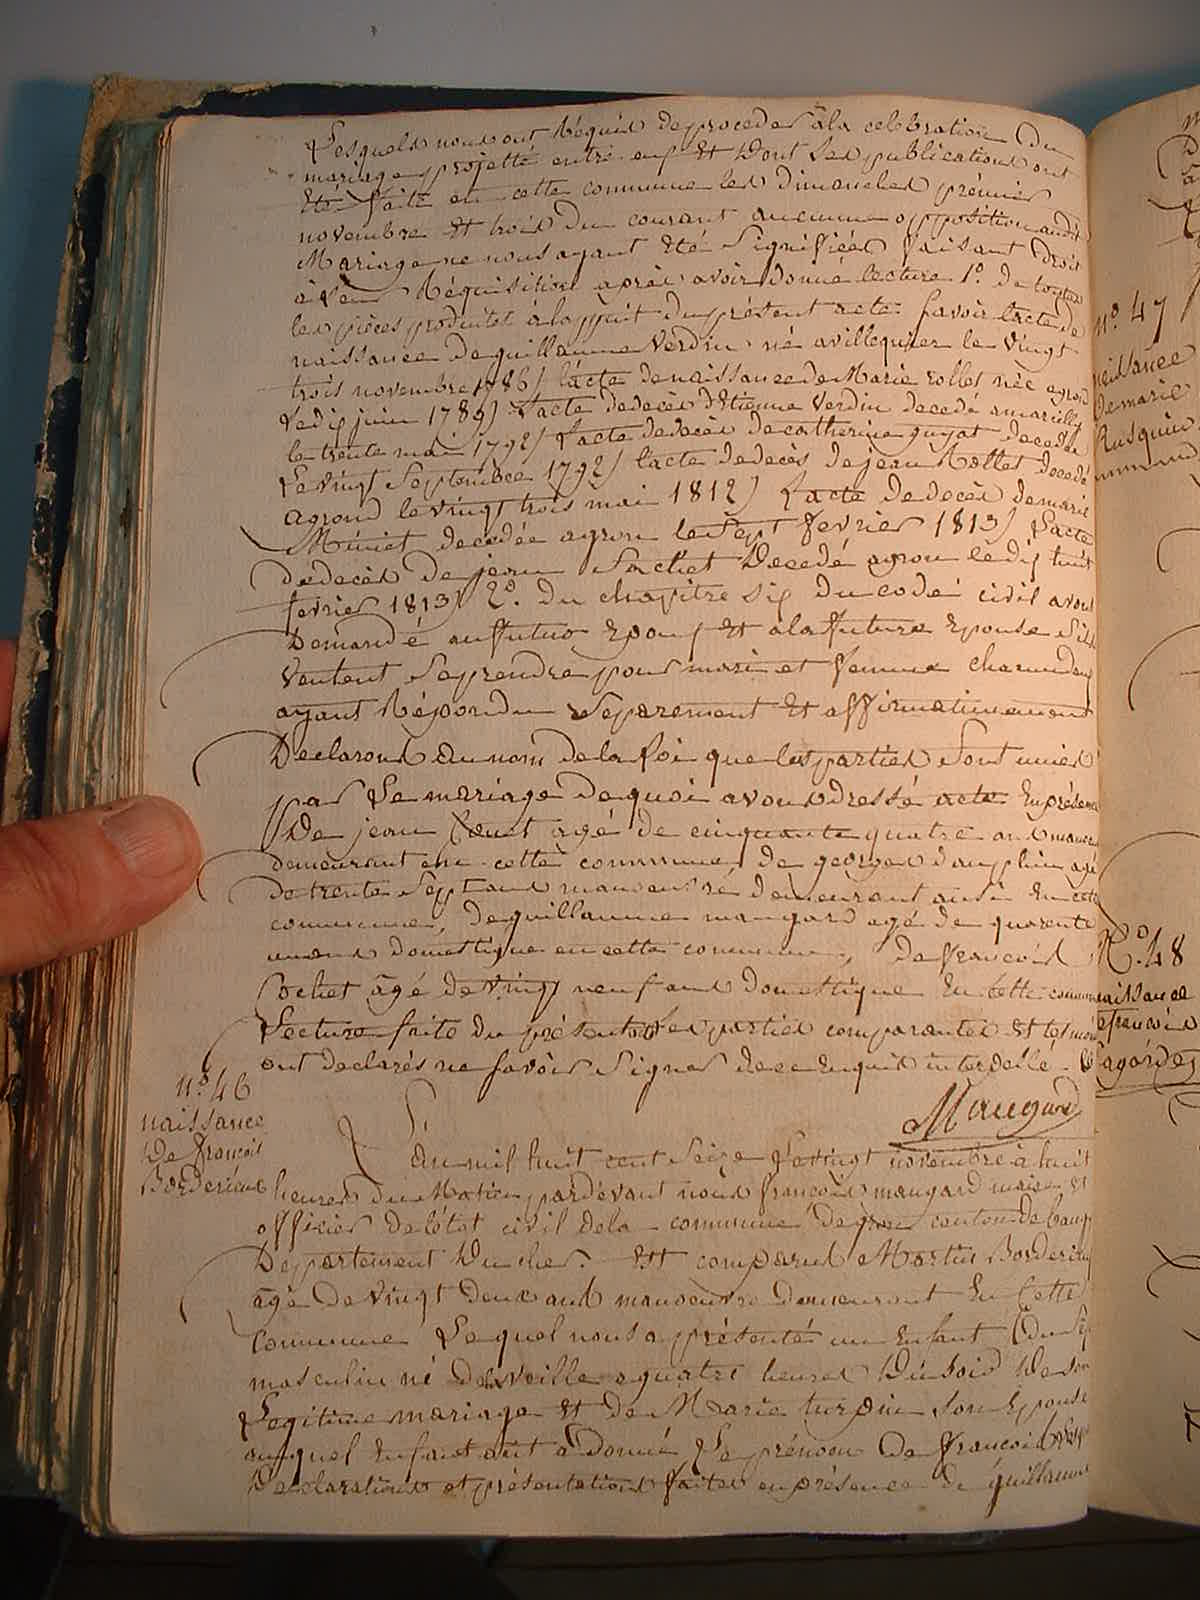 Lesquels nous ont Réquis de proceder à la celebration du
mariage projetté entre eux Et dont les publications ont
Eté faite en cette commune les dimanches premier
novembre Et trois du courant aucunne oppositions audit
Mariage ne nous ayant Eté Signifiées faisant droit
à leur Réquisition aprèr avoir donné lecture 1.º de toutes
les pièces produites à la ppuit du présent acte. Savoir l'acte de
naissance de guillaume Verdin né a villequier le vingt
trois novembre 1786) l'acte de naissance de Marie rollet née agron
Le dix juin 1789) L'acte de decès d'Etienne Verdin decedé
le trente mai 1792) L'acte de decès de catherine guyot decedée
Le vingt Septembre 1792) l'acte de decès de jean Rollet decedé
agrond le vingt trois mai 1812) L'acte de decès de marie
decedée agron le Sept fevrier 1813) L'acte
de decès de jean Sachet Decedé agron le dix huit
fevrier 1813) 2.º du chapitre six du code civil avons
Demandé au futur Epoux Et à la future Epouse S'ils
veulent Se prendre pour mari et femme chacun deux
ayant Répondu Séparement Et affirmativement
Declarons au nom de la foi que les parties Sont unies
par Le mariage de quoi avons dressé acte En présence
De jean agé de cinquante quatre ans
demeurant en cette commune, de georges dauphin agé
de trente Sept ans manoeuvre demeurant aussi En cette
commune, de guillaume maugard agé de quarente
un ans domestique en cette commune, de francois
Cochet âgé de vingt neuf ans domestique En cette commune
Lecture faite du présent Les parties comparantes Et
ont declarés ne Savoir Signer de ce Enquis interpellé.
Maugard
n.º 46
naissance
De francois
Borderieux
L'An mil huit cent Seize Le vingt novembre à huit
heures du Matin pardevant nous francois maugard maire Et
officier de létat civil de la commune de gron canton de baugy
Departement Du cher. Est comparus Martin Borderieux
agé De vingt Deux ans manoeuvre demeurant En Cette
Commune Lequel nous a présenté un Enfant du Sexe
masculin né de la veille a quatre heures Du Soir De son
Legitime mariage Et de Marie turpin Son Epouse
auxquel Enfant a donné Le prénom De francois
Declarations et présentations faites en présence de guillaume
n.º 47
naissance
De marie
N.º 48
naissance
De francois